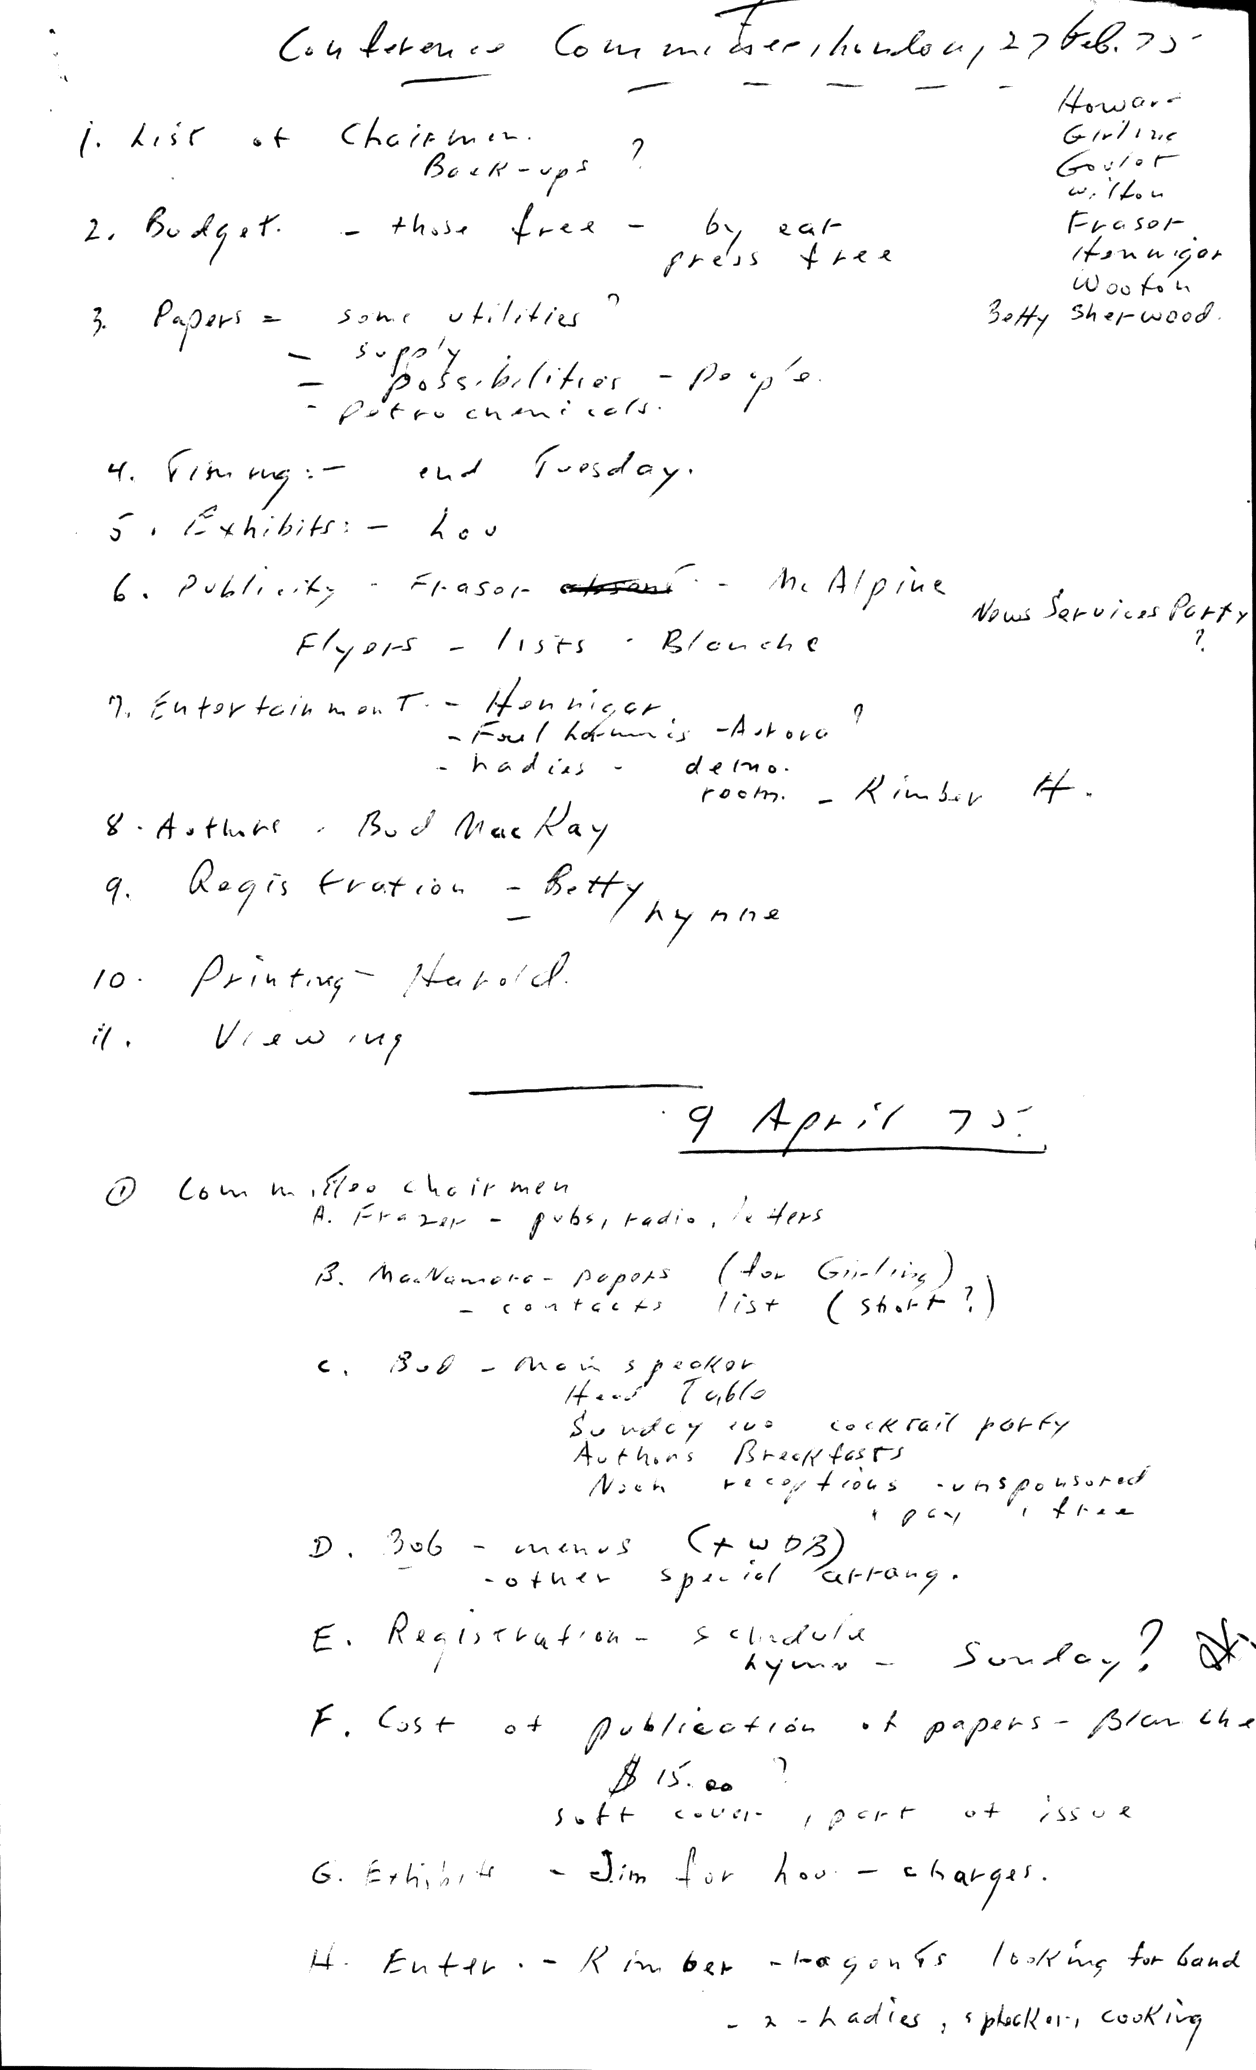 Conference Committee, London, 27 Feb. 75
Howard
Girling
Goulet
Wilton
Fraser
Hennigar
Wooton
Betty Sherwood.
1. List of Chairmen.
Back-ups ?
2. Budget. - those free - by cat
press free
3. Papers = some utilities ?
- supply
- possibilities - people.
- petrochemicals.
4. Timing :- end Tuesday.
5. Exhibits :- Lou
6. Publicity - Fraser - McAlpine
News Services Party ?
Flyers - lists - Blanche
7. Entertainment. - Hennigar
- Aurora ?
- Ladies - demo.
room. - Kimber H.
8. Authors - Bud MacKay
9. Registration - Betty
- Lynne
10. Printing - Harold.
11. Viewing
9 April 75.
① Committee chairmen
A. Frazer - pubs, radio, letters
B. MacNamara - papers (for Girling)
- contacts list (short ?)
C. Bud - Main speaker
Head Table
Sunday eve cocktail party
Authors Breakfasts
Noon receptions - unsponsored
, pay , free
D. Bob - menus (+ WDB)
- other special arrang.
E. Registration - schedule
Lynne - Sunday?
F. Cost of publication of papers - Blanche
$ 15.00 ?
soft cover, part of issue
G. Exhibits - Jim for Lou - charges.
H. Enter. - Kimber - agents looking for band
- 2 - Ladies, speaker, cooking